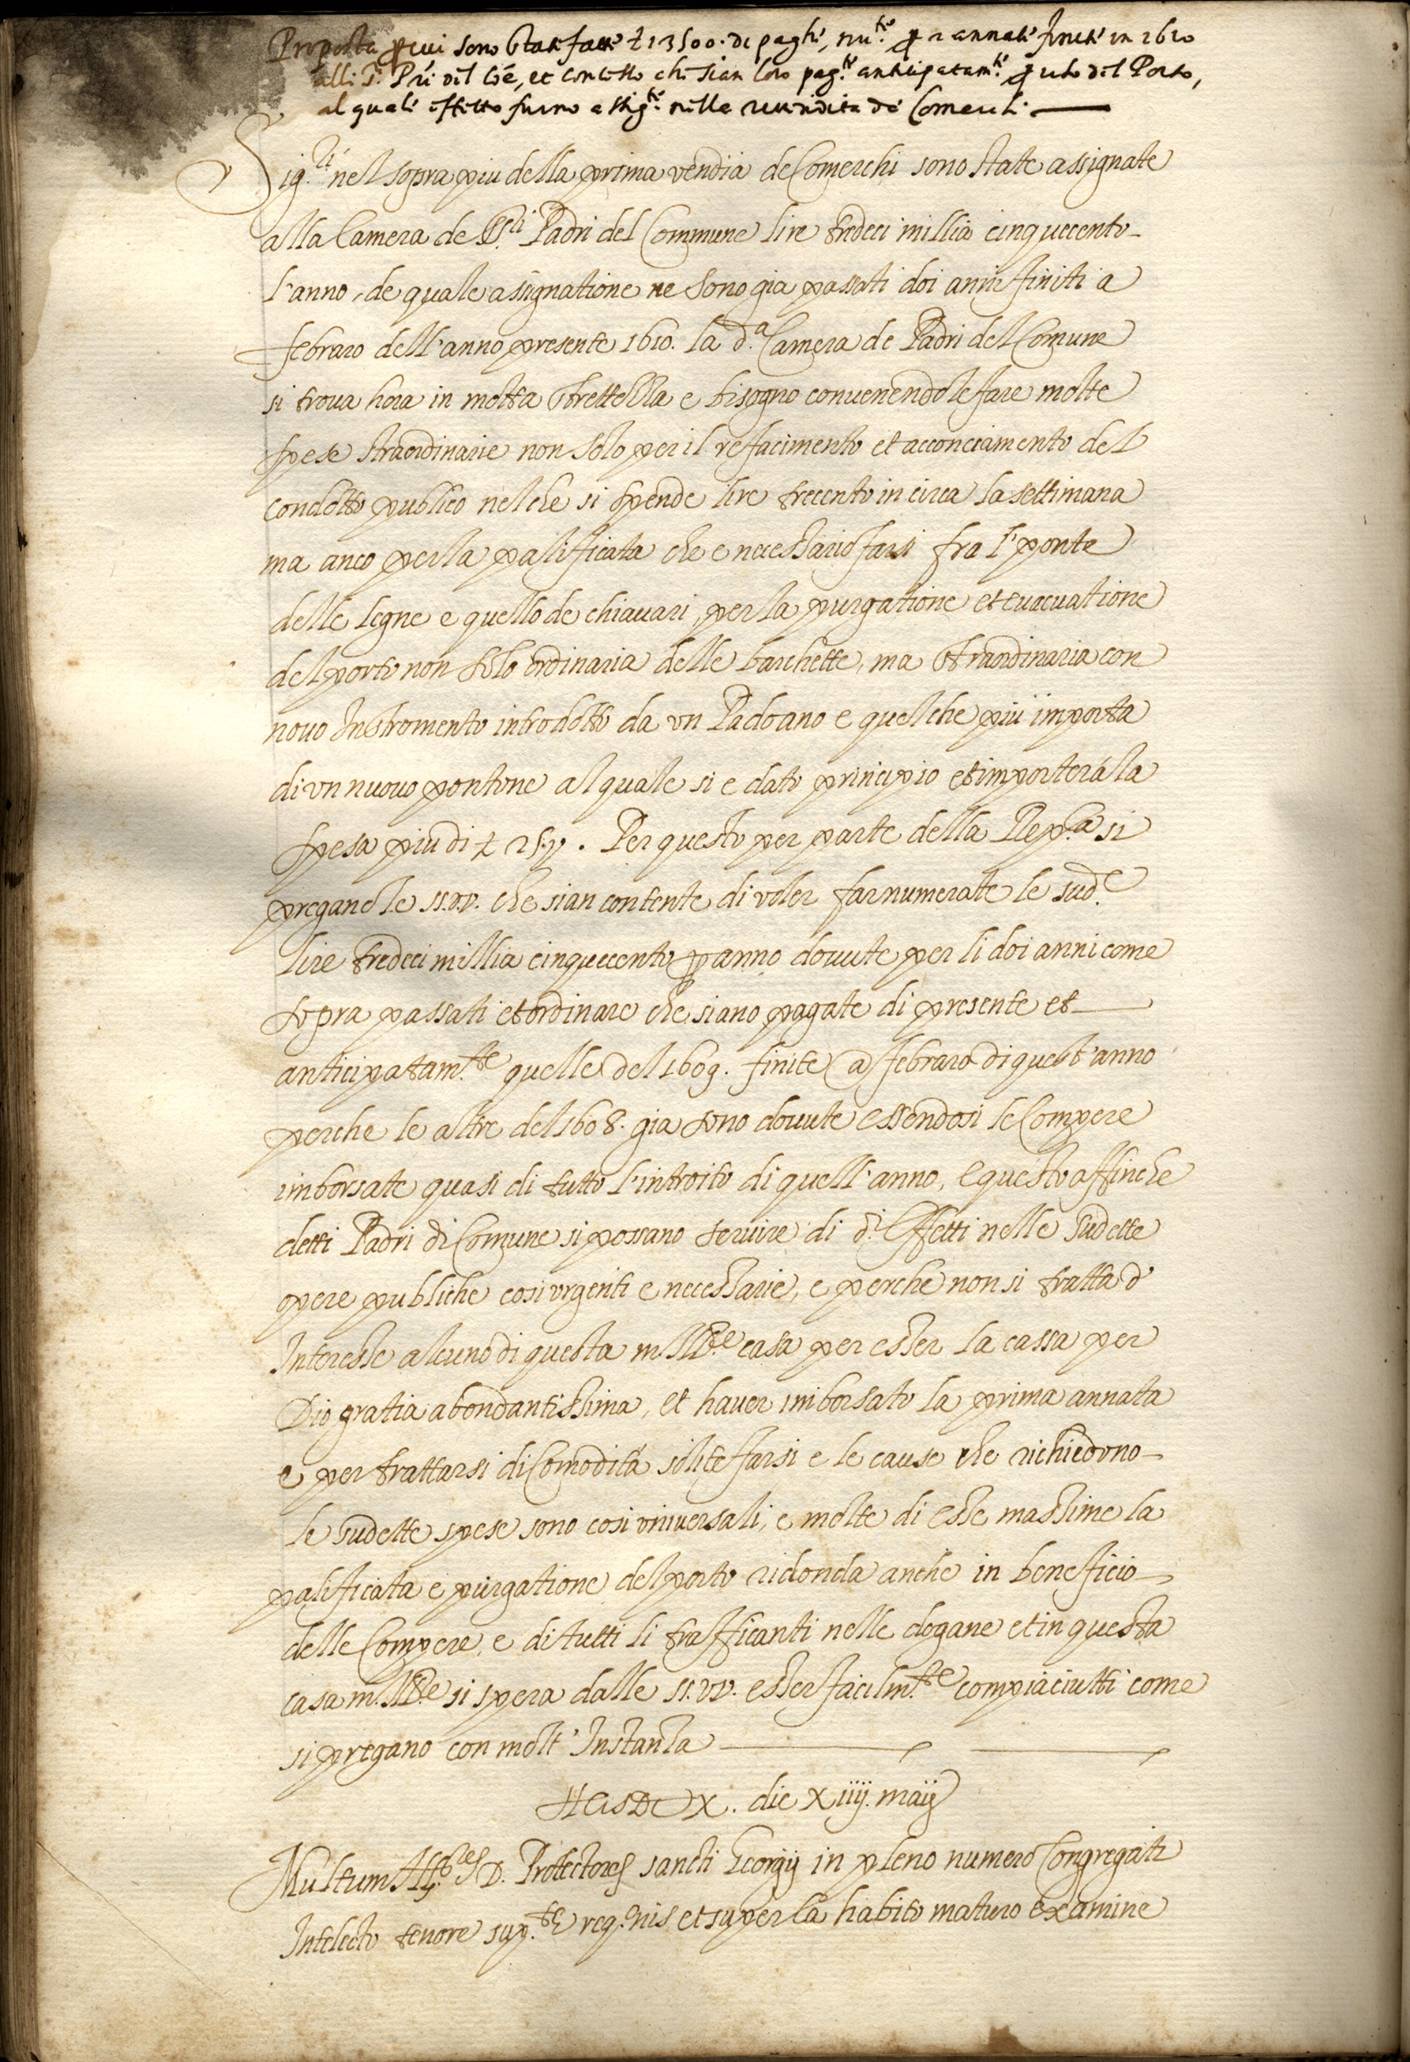 Proposta p cui sono state fatte £ 13500. di pagh.i, nu.te p 2 annate finite in 1610
alli S.i P.ri del Co.e, et concesso che sian loro pag.te anticipatam.te p uso del Porto,
al quale effetto furno assig.te nella revendita de Comerchi.
Sig.ri nel sopra piu della prima vendia de Comerchi sono state assignate
alla Camera de Ill.ri Padri del Commune lire tredeci millia cinquecento
l'anno, de quale assignatione ne sono gia passati doi anni finiti a
febraro dell'anno presente 1610. la d.a Camera de Padri del Comune
si trova hora in molta strettezza e bisogno convenendole fare molte
spese straordinarie non solo per il refacimento et acconciamento del
condotto publico nel che si spende lire trecento in circa la settimana
ma anco per la palificata che e necessario farsi fra l' ponte
delle legne e quello de chiavari, per la purgatione et evacuatione
del porto non solo ordinaria delle barchette, ma straordinaria con
novo Instromento introdotto da un Padoano e quel che piu importa
di un nuovo pontone al quale si e dato principio et importerà la
spesa piu di £ 25 . Per questo per parte della Rep.ca si
pregano le SS.VV. che sian contente di voler far numerare le sud.e
lire tredeci millia cinquecento p anno dovute per li doi anni come
sopra passati et ordinare che siano pagate di presente et
anticipatam.te quelle del 1609. finite a febraro di quest'anno
perche le altre del 1608. gia sono dovute essendosi le Compere
imborsate quasi di tutto l'introito di quell'anno, e questo affinche
detti Padri di Comune si possano servire di d.i Effetti nelle sudette
opere publiche cosi urgenti e necessarie, e perche non si tratta d'
Interesse alcuno di questa m. Ill.re casa per esser la cassa per
Dio gratia abondantissima, et haver imborsato la prima annata
e per trattarsi di Comodità solite farsi e le cause che richiedono
le sudette spese sono cosi universali, e molte di esse massime la
palificata e purgatione del porto ridonda anche in beneficio
delle Compere, e di tutti li trafficanti nelle dogane et in questa
casa m. Ill.re si spera dalle SS.VV. esser facilm.te compiaciutti come
si pregano con molt' Instanza
MDCX. die XIIII. maij
Multum Ill.res D. Protectores sancti Georgij in pleno numero Congregati
Intelecto tenore sup.te req.nis et super ea habito maturo examine